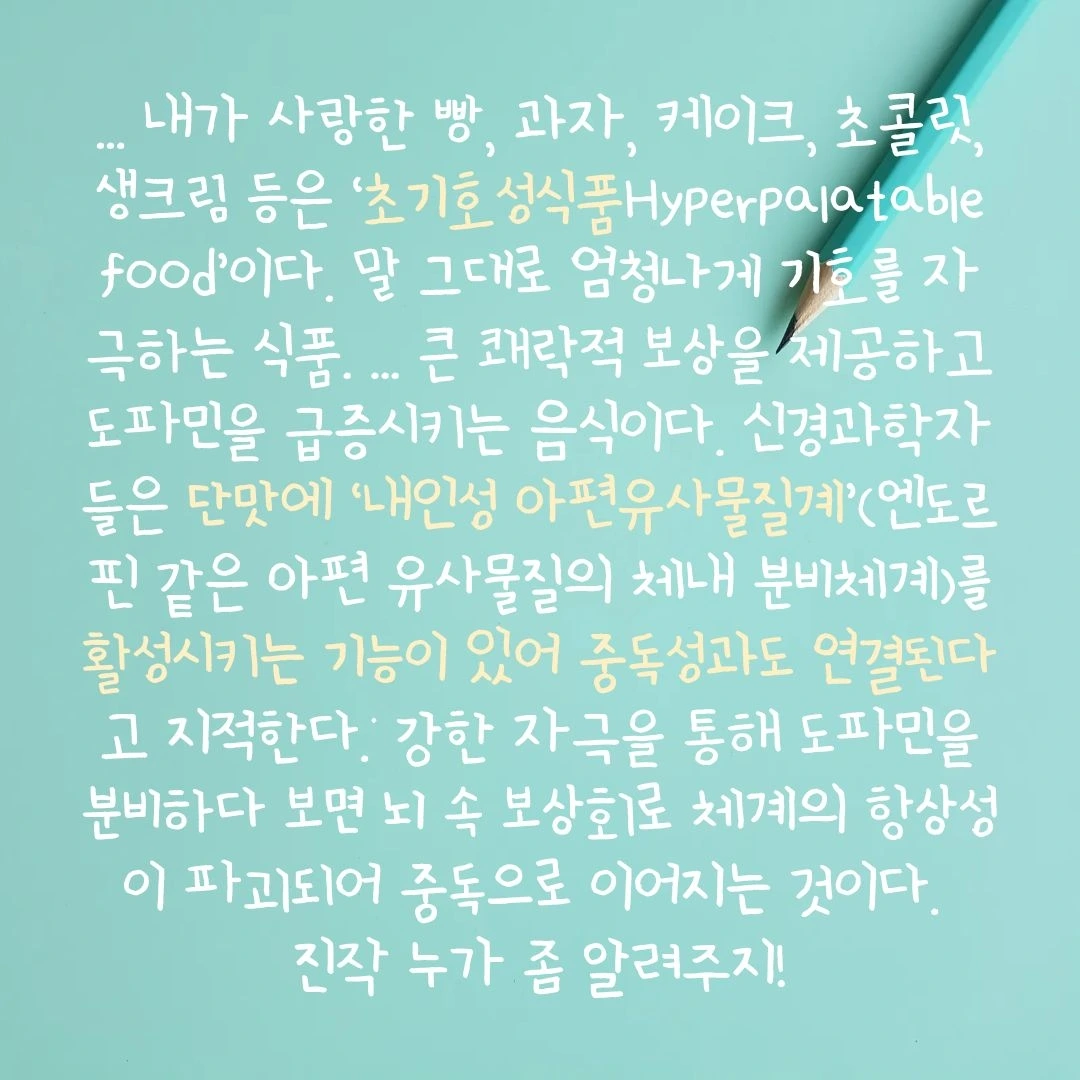 ... 내가 사랑한 빵, 과자, 케이크, 초콜릿,
생크림 등은 ‘초기호성식품Hyperpalatable
food’이다. 말 그대로 엄청나게 기호를 자
극하는 식품. ... 큰 쾌락적 보상을 제공하고
도파민을 급증시키는 음식이다. 신경과학자
들은 단맛에 ‘내인성 아편유사물질계’(엔도르
핀 같은 아편 유사물질의 체내 분비체계)를
활성시키는 기능이 있어 중독성과도 연결된다
고 지적한다.˙ 강한 자극을 통해 도파민을
분비하다 보면 뇌 속 보상회로 체계의 항상성
이 파괴되어 중독으로 이어지는 것이다.
진작 누가 좀 알려주지!